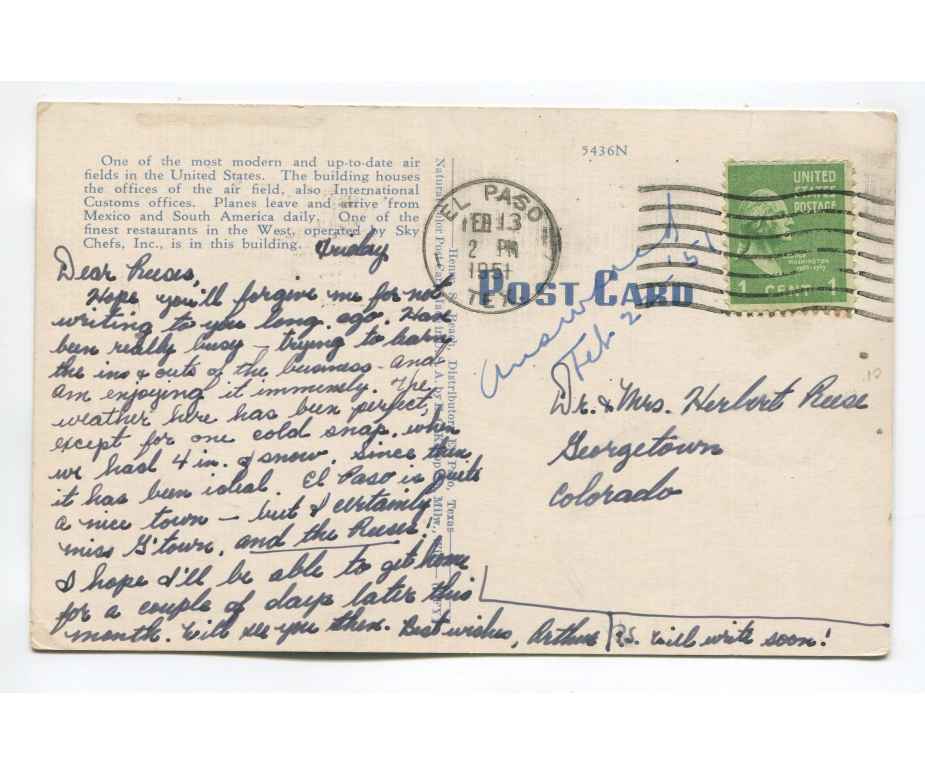 One of the most modern and up-to-date air
fields in the United States. The building houses
the offices of the air field, also International
Customs offices. Planes leave and arrive from
Mexico and South America daily. One of the
finest restaurants in the West, operated by Sky
Chefs, Inc., is in this building.
Friday
Dear Reeses,
Hope you'll forgive me for not
writing to you long ago. Have
been really busy — trying to learn
the ins & outs of the business - and
am enjoying it immensely. The
weather here has been perfect,
except for one cold snap, when
we had 4 in. of snow. Since then
it has been ideal. El Paso is quite
a nice town — but I certainly
miss G'town, and the Reeses!
I hope I'll be able to get home
for a couple of days later this
month. Will see you then. Best wishes, Arthur
P.S. Will write soon!
5436N
EL PASO
FEB 13
2 PM
1951
TEX
UNITED
STATES
POSTAGE
WASHINGTON
1 CENT 1
POST CARD
answered
Feb. 2 '51
Dr. & Mrs. Herbert Reese
Georgetown
Colorado
Distributor, El Paso, Texas